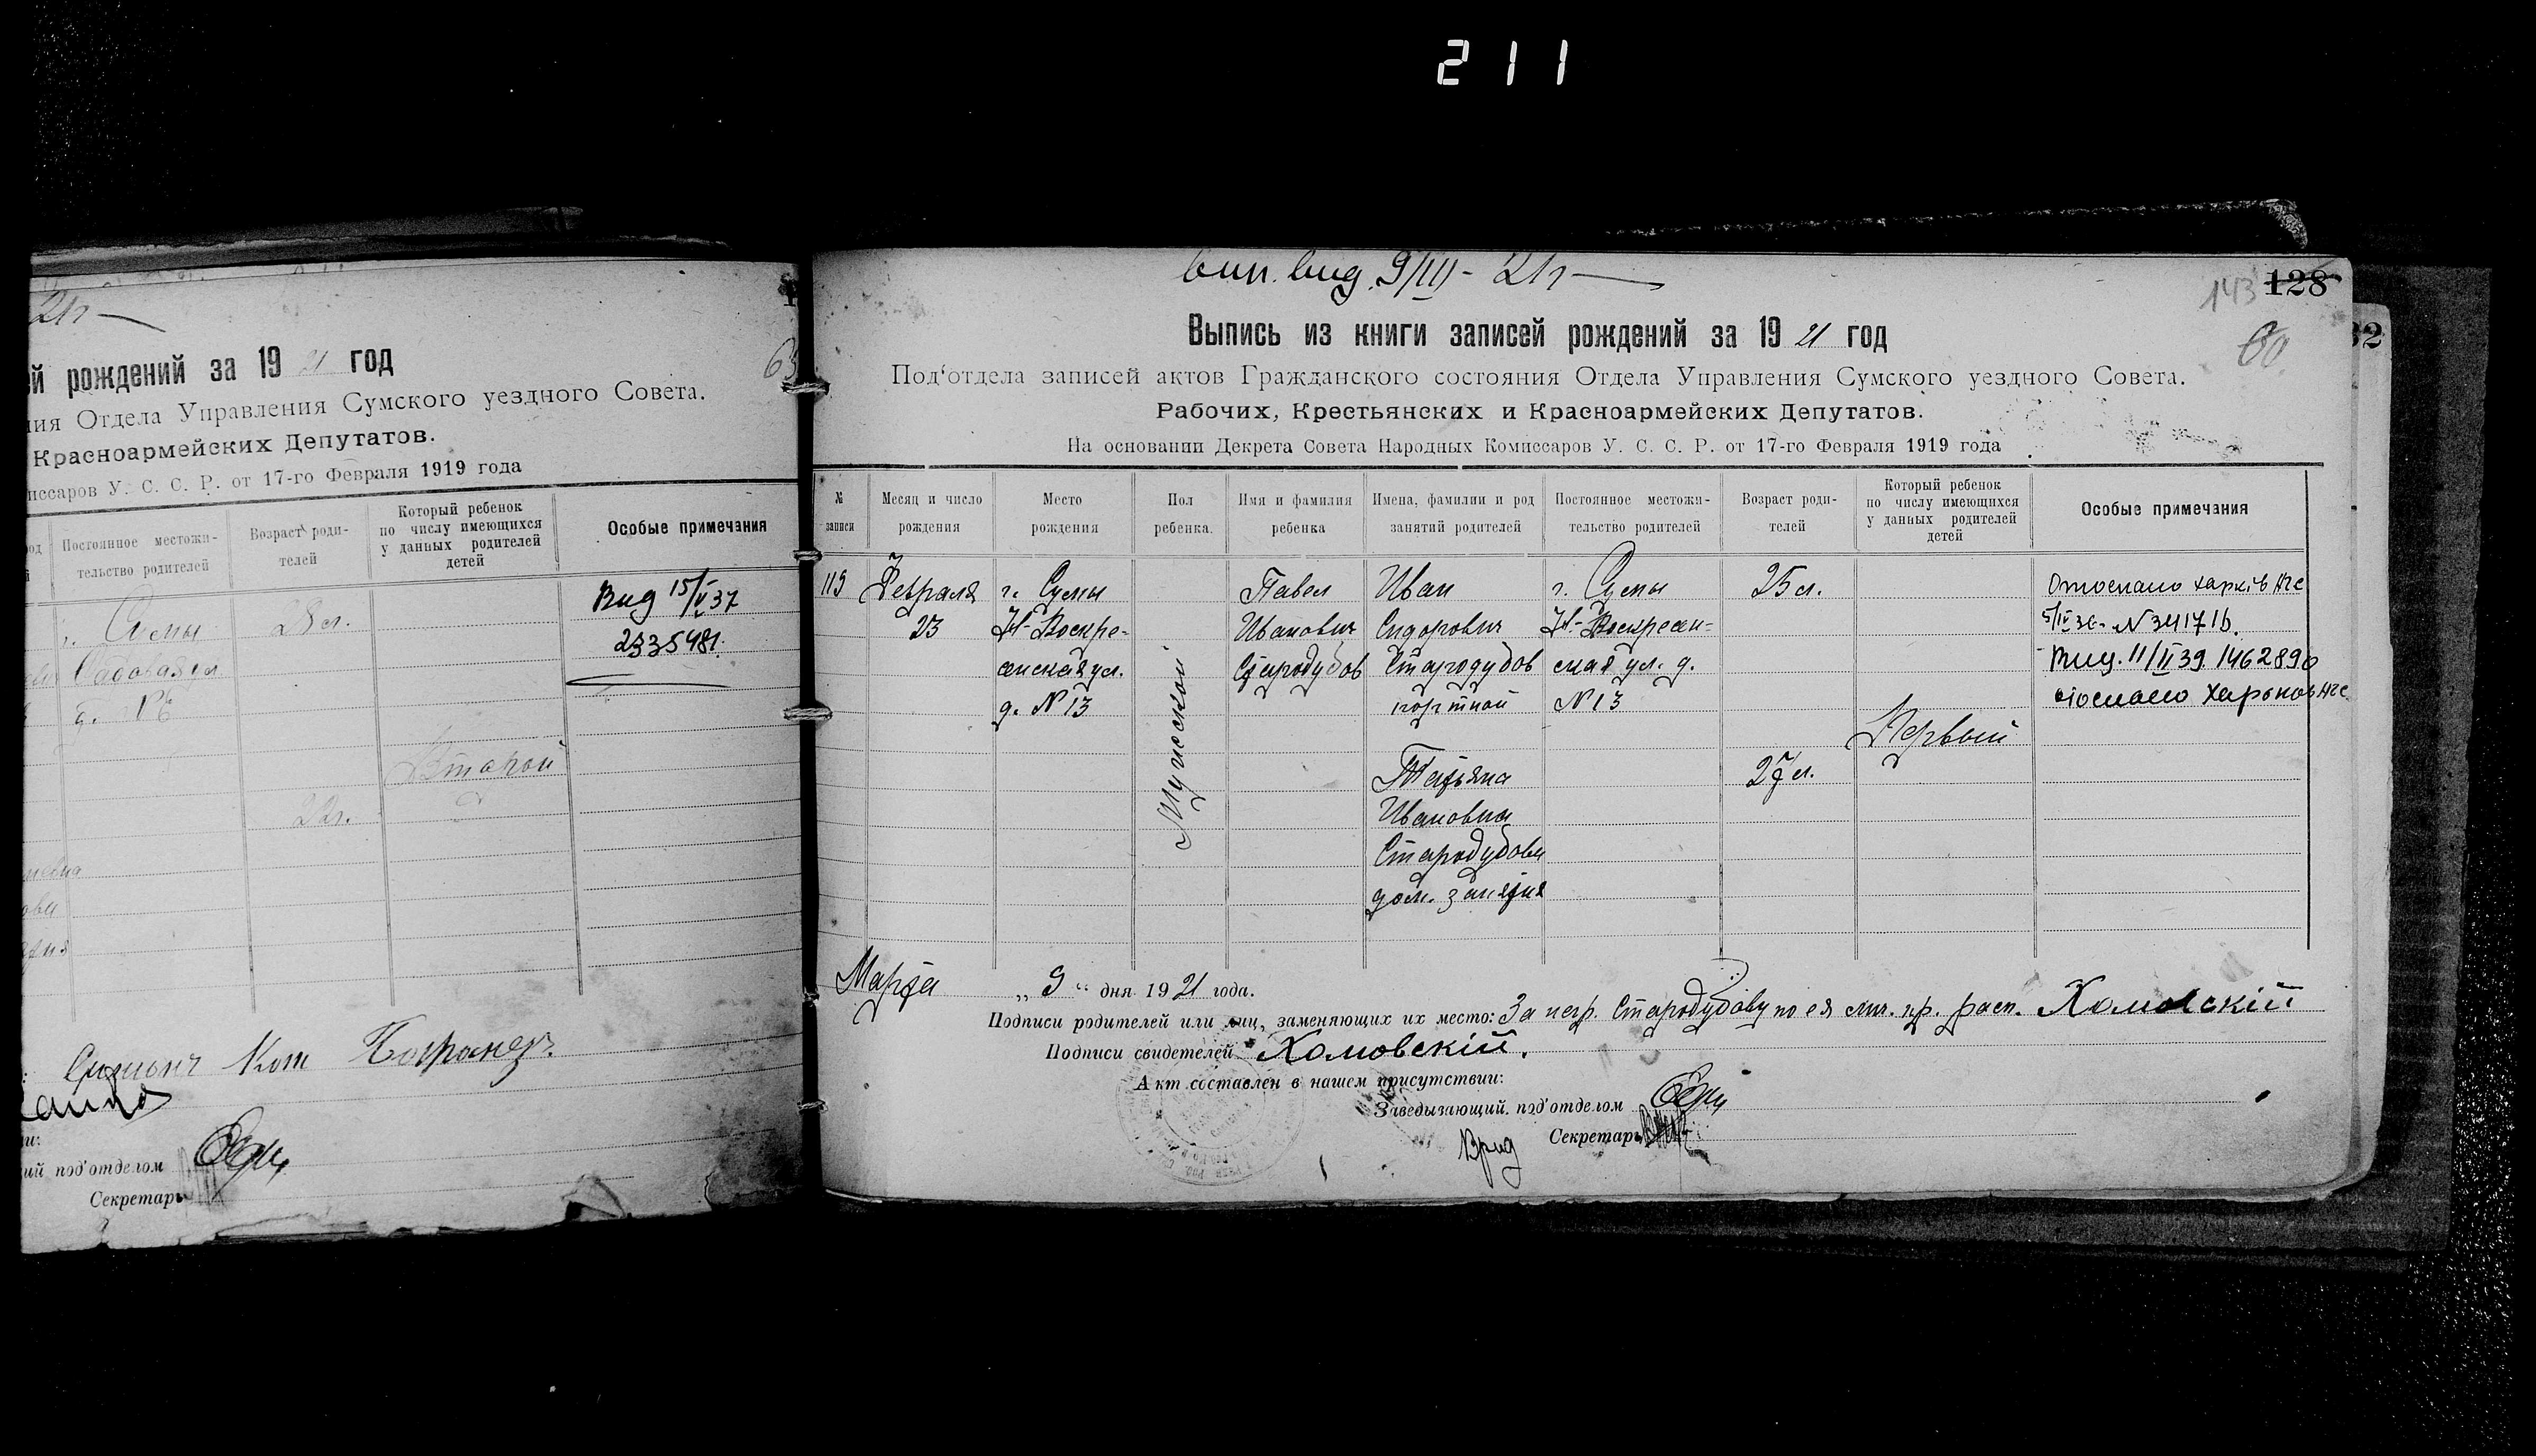 211
21г
й рождений за 19 21 год
ия Отдела Управления Сумского уездного Совета.
Красноармейских Депутатов.
иссаров У. С. С. Р. от 17-го Февраля 1919 года
Постоянное местожи-
тельство родителей
Возраст роди-
телей
Который ребенок
по числу имеющихся
у данных родителей
детей
Особые примечания
г. Сумы
Садовая ул
д. №
28 л.
22г.
Второй
Вид 15/V 37
2335481.
Кот
под'отделом
Секретарь
вип. вид. 9/III - 21г
143
128
60
32
Выпись из книги записей рождений за 19 21 год
Под'отдела записей актов Гражданского состояния Отдела Управления Сумского уездного Совета.
Рабочих, Крестьянских и Красноармейских Депутатов.
На основании Декрета Совета Народных Комиссаров У. С. С. Р. от 17-го Февраля 1919 года
№
записи
Месяц и число
рождения
Место
рождения
Пол
ребенка.
Имя и фамилия
ребенка
Имена, фамилии и род
занятий родителей
Постоянное местожи-
тельство родителей
Возраст роди-
телей
Который ребенок
по числу имеющихся
у данных родителей
детей
Особые примечания
115
Февраля
23
г. Сумы
Н-Воскре-
сенская ул.
д. № 13
Мужской
Павел
Иванович
Стародубов
Иван
Сидорович
Стародубов
портной
Татьяна
Ивановна
Стародубова
дом. занятия
г. Сумы
Н-Воскресен-
ская ул. д.
№ 13
25 л.
27 л.
Первый
Отослано Харків
5/IV 36. № 341716.
Вид. 11/II 39. 1462890
Харьков
Марта „ 9 “ дня 1921 года.
Подписи родителей или лиц, заменяющих их место: За негр. Стародубову по ея лич. пр. расп. Хомовскій
Подписи свидетелей Хомовскій.
Акт составлен в нашем присутствии:
Заведызающий под'отделом
Врид Секретарь